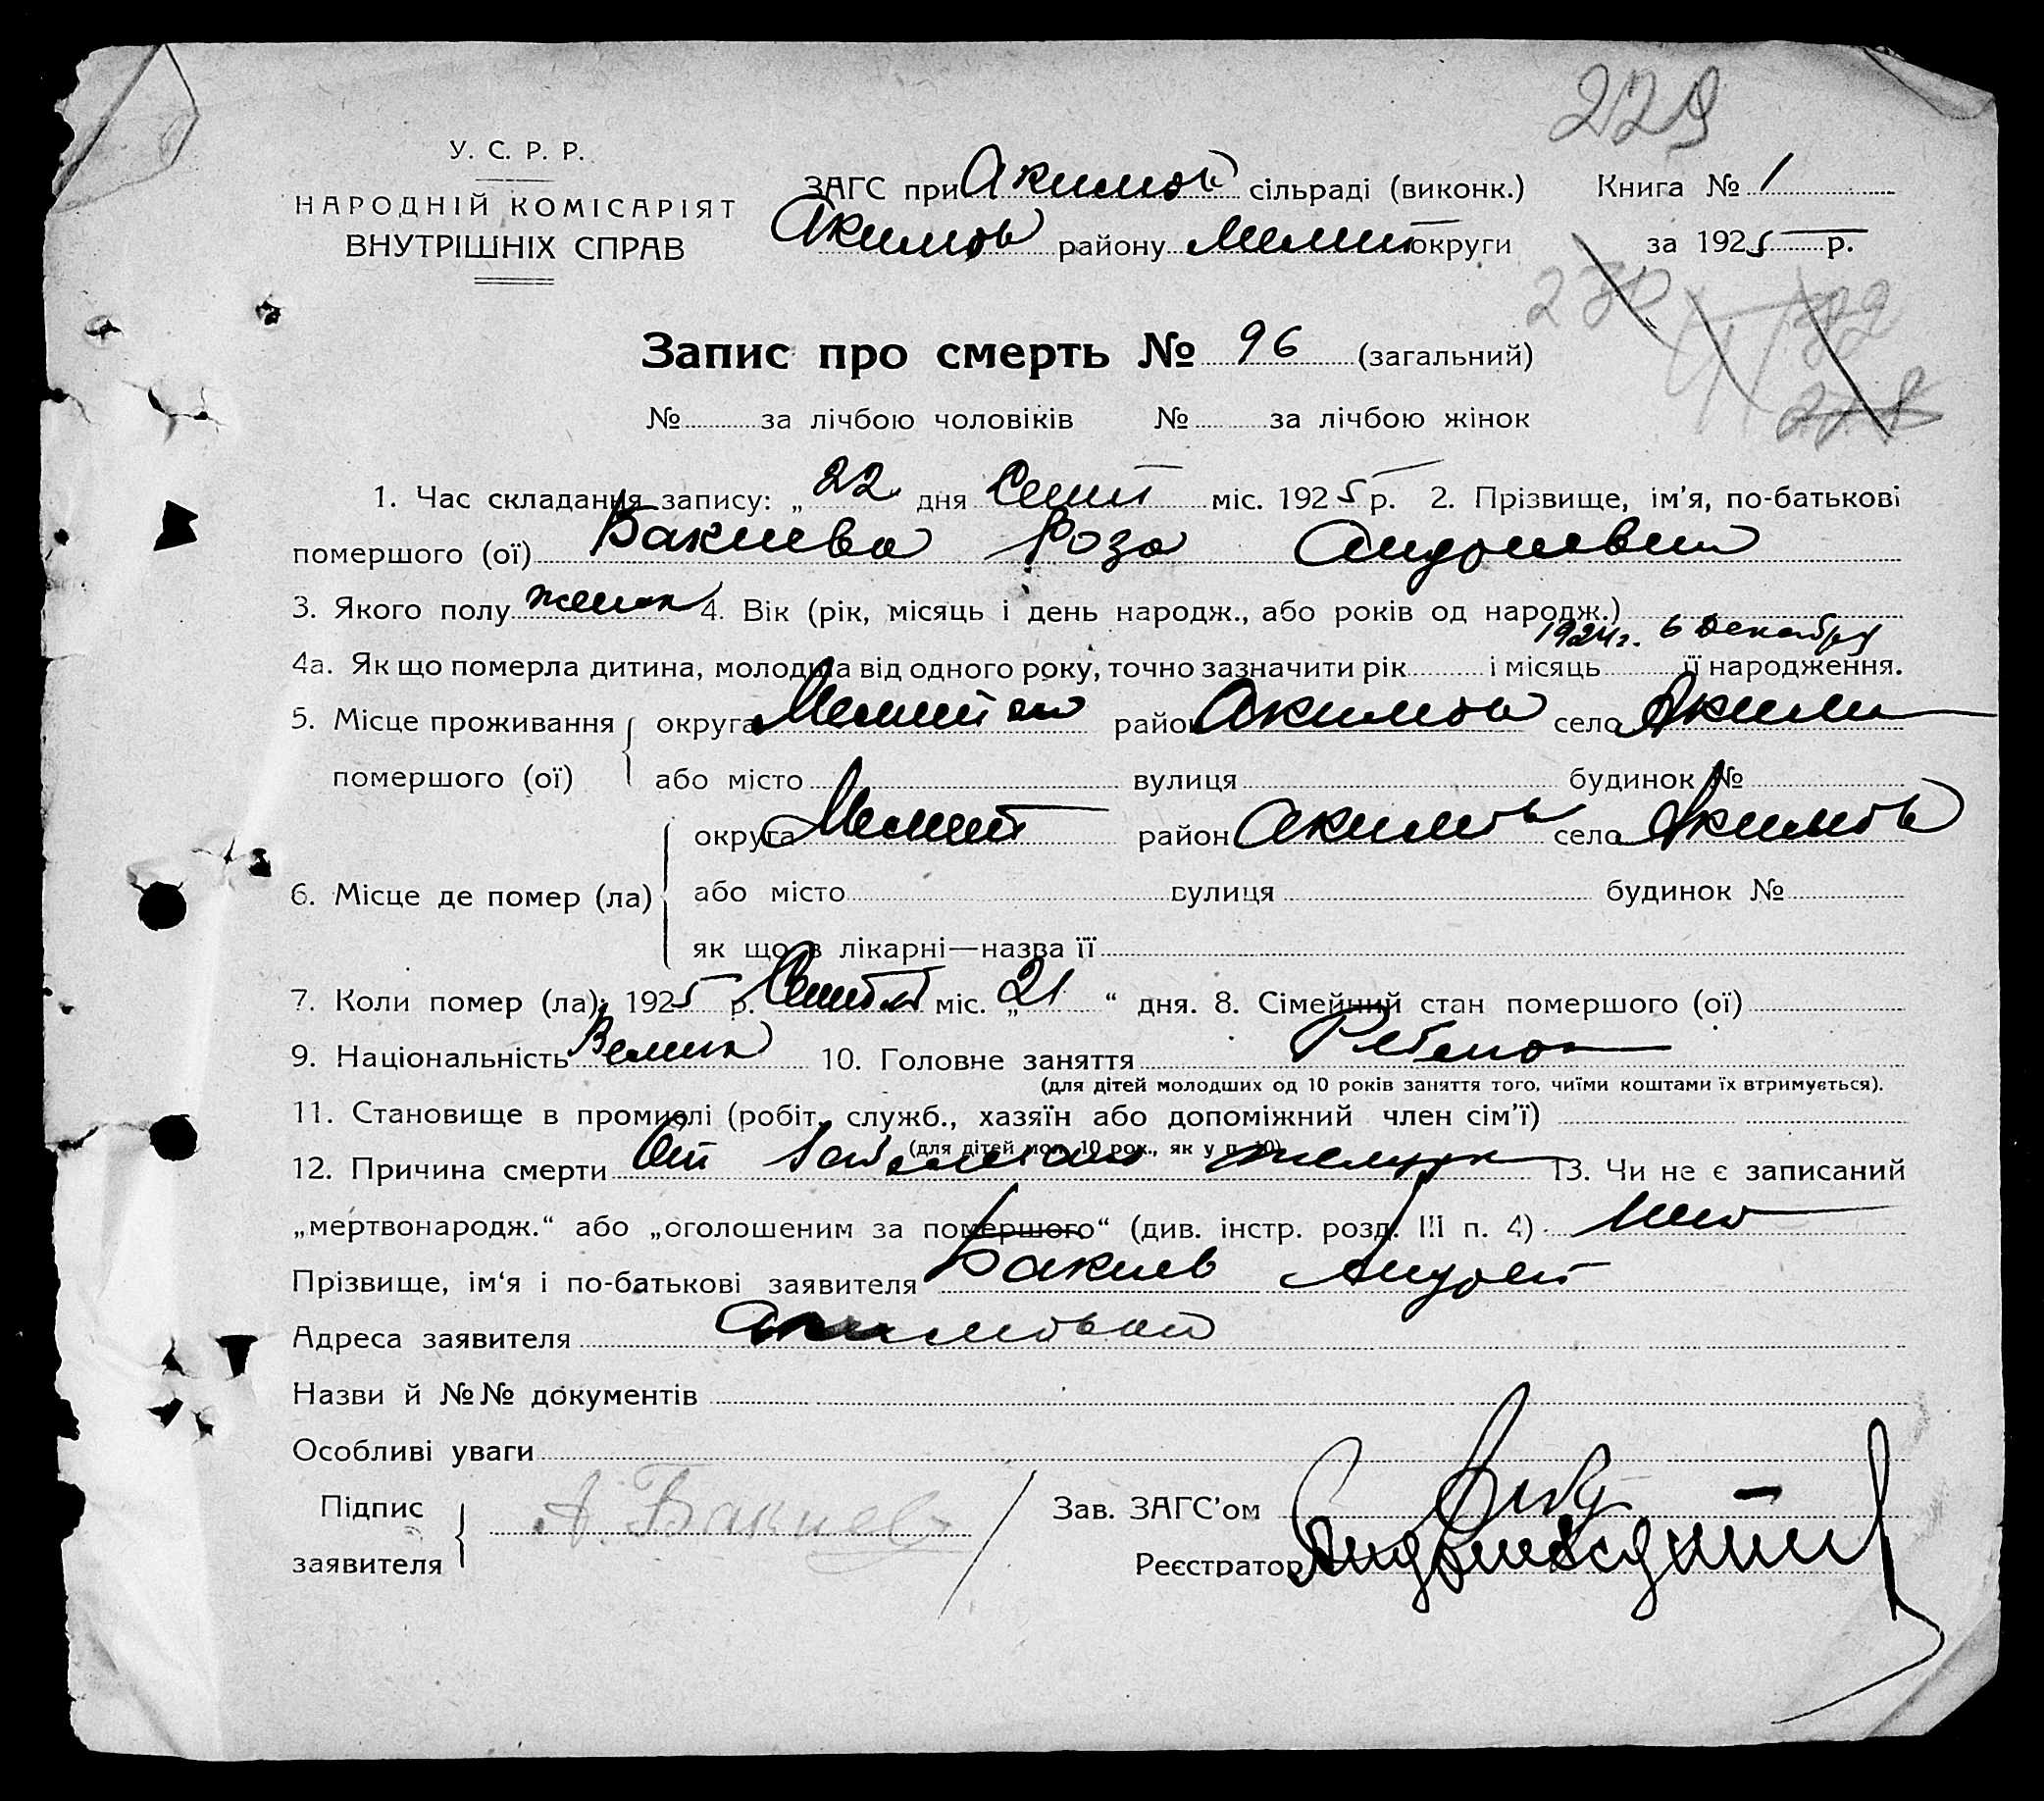 229
У. С. Р. Р.
НАРОДНІЙ КОМІСАРІЯТ
ВНУТРІШНІХ СПРАВ
ЗАГС при Акимов сільраді (виконк.) Книга № 1
Акимов району Мелит округи за 1925 р.
230
Запис про смерть № 96 (загальний)
228
№ за лічбою чоловіків № за лічбою жінок
1. Час складання запису: „22 дня Сент міс. 1925 р. 2. Прізвище, ім'я, по-батькові
помершого (ої) Бакиева Роза Андреевна
3. Якого полу женск 4. Вік (рік, місяць і день народж., або років од народж.)
1924г. 6 Декабря
4а. Як що померла дитина, молодша від одного року, точно зазначити рік і місяць її народження.
5. Місце проживання помершого (ої) округа район Акимов село Аким
або місто вулиця будинок №
6. Місце де помер (ла) округа Мелит район Акимов село Акимов
або місто вулиця будинок №
як що в лікарні—назва її
7. Коли помер (ла): 1925 р. міс. „21“ дня. 8. Сімейний стан помершого (ої)
9. Національність 10. Головне заняття Ребенок
(для дітей молодших од 10 років заняття того, чиїми коштами їх втримується).
11. Становище в промислі (робіт. служб., хазяїн або допоміжний член сім'ї)
(для дітей мол. 10 рок., як у п. 10)
12. Причина смерти От 13. Чи не є записаний
„мертвонародж.“ або „оголошеним за помершого“ (див. інстр. розд. III п. 4)
Прізвище, ім'я і по-батькові заявителя Бакиев Андрей
Адреса заявителя Акимовка
Назви й №№ документів
Особливі уваги
Підпис заявителя А. Бакиев Зав. ЗАГС'ом
Реєстратор